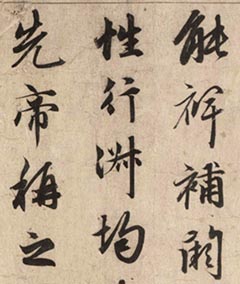 能裨補闕
性行淑均
先帝稱之